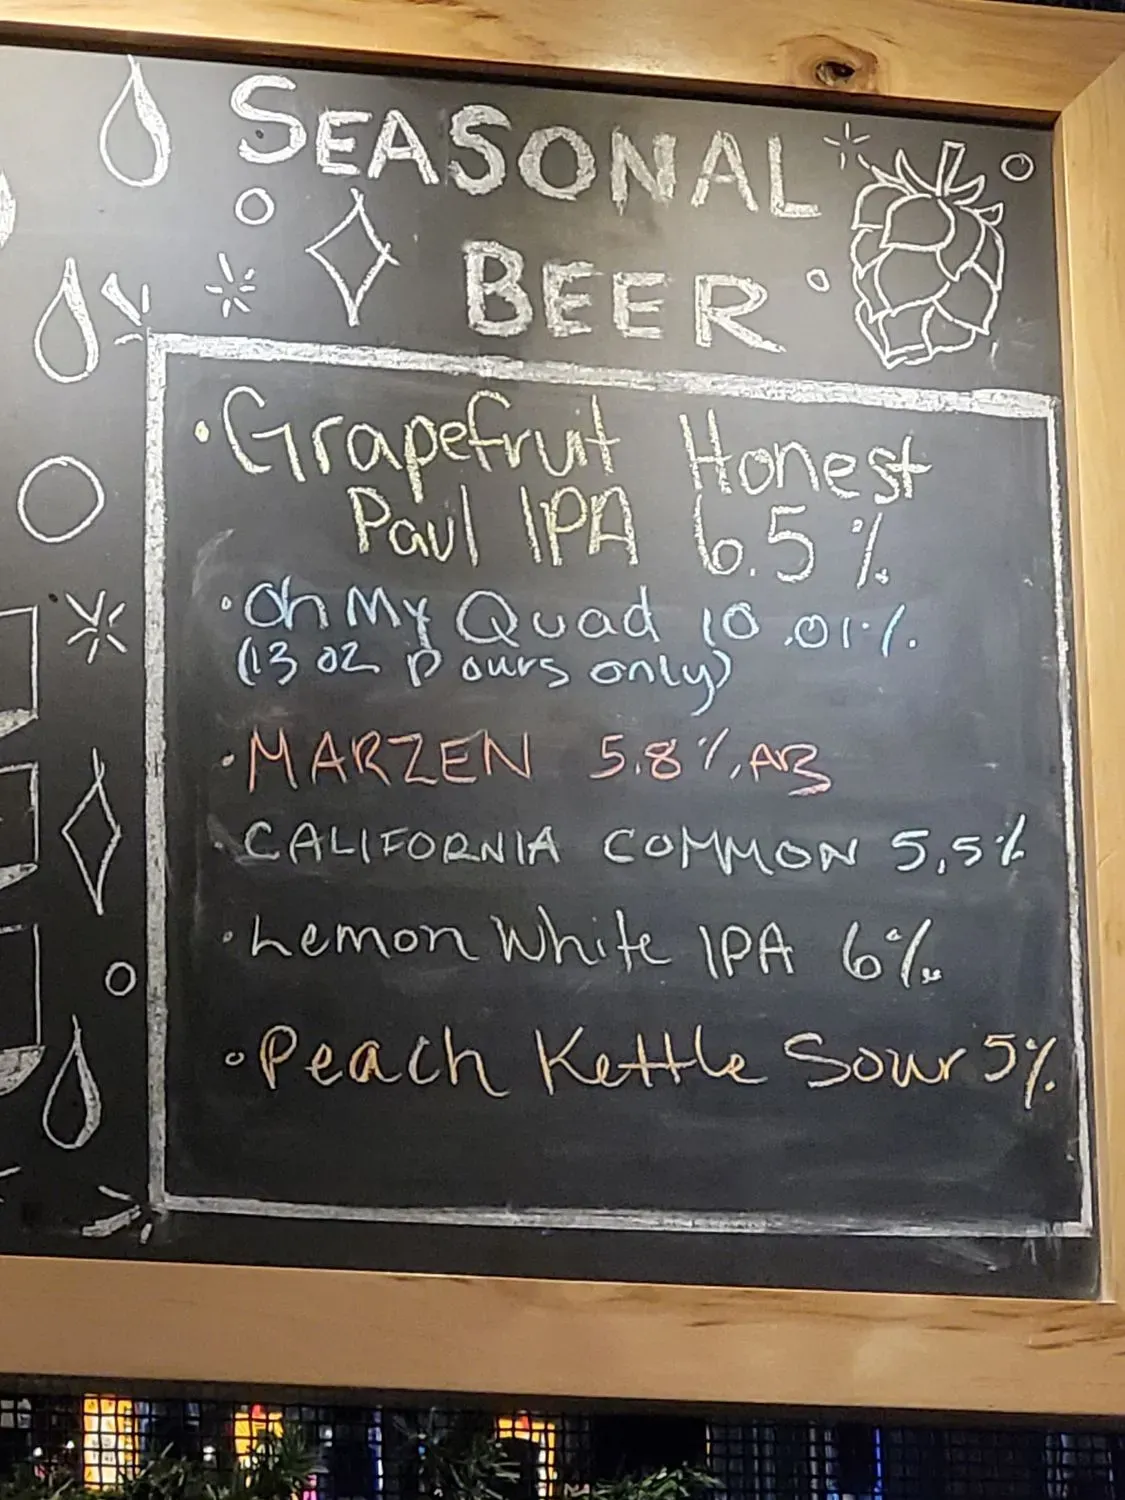 SEASONAL
BEER
• Grapefruit Honest
Paul IPA 6.5%
• Oh My Quad 10.01%.
(13 oz pours only)
• MARZEN 5.8% AB
• CALIFORNIA COMMON 5.5%
• Lemon White IPA 6%
• Peach Kettle Sour 5%